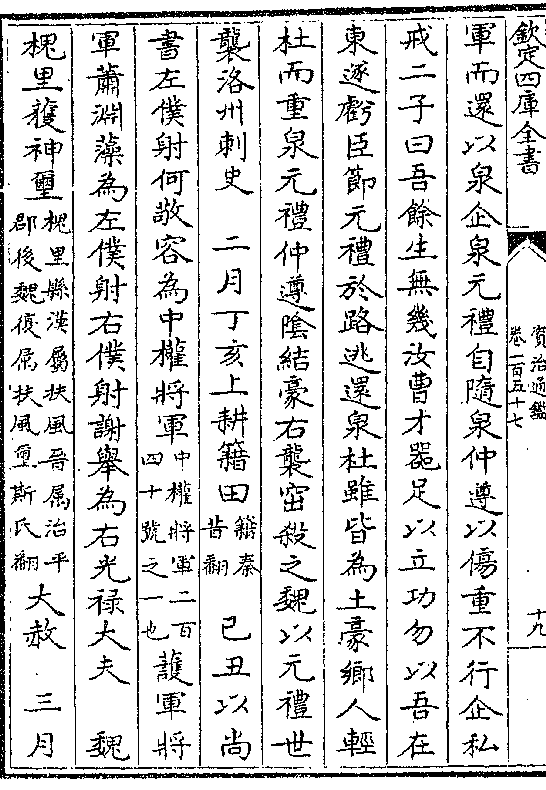 欽定四庫全書
資治通鑑
卷一百五十七
十九
軍而還以泉企泉元禮自隨泉仲遵以傷重不行企私
戒二子曰吾餘生無幾汝曹才器足以立功勿以吾在
東遂虧臣節元禮於路逃還泉杜雖皆為土豪鄉人輕
杜而重泉元禮仲遵陰結豪右襲窋殺之魏以元禮世
襲洛州刺史　二月丁亥上耕籍田籍秦昔翻　己丑以尚
書左僕射何敬容為中權將軍中權將軍二百四十號之一也護軍將
軍蕭淵藻為左僕射右僕射謝舉為右光禄大夫　魏
槐里獲神璽槐里縣漢屬扶風晉属治平郡後魏復属扶風璽斯氏翻大赦　三月